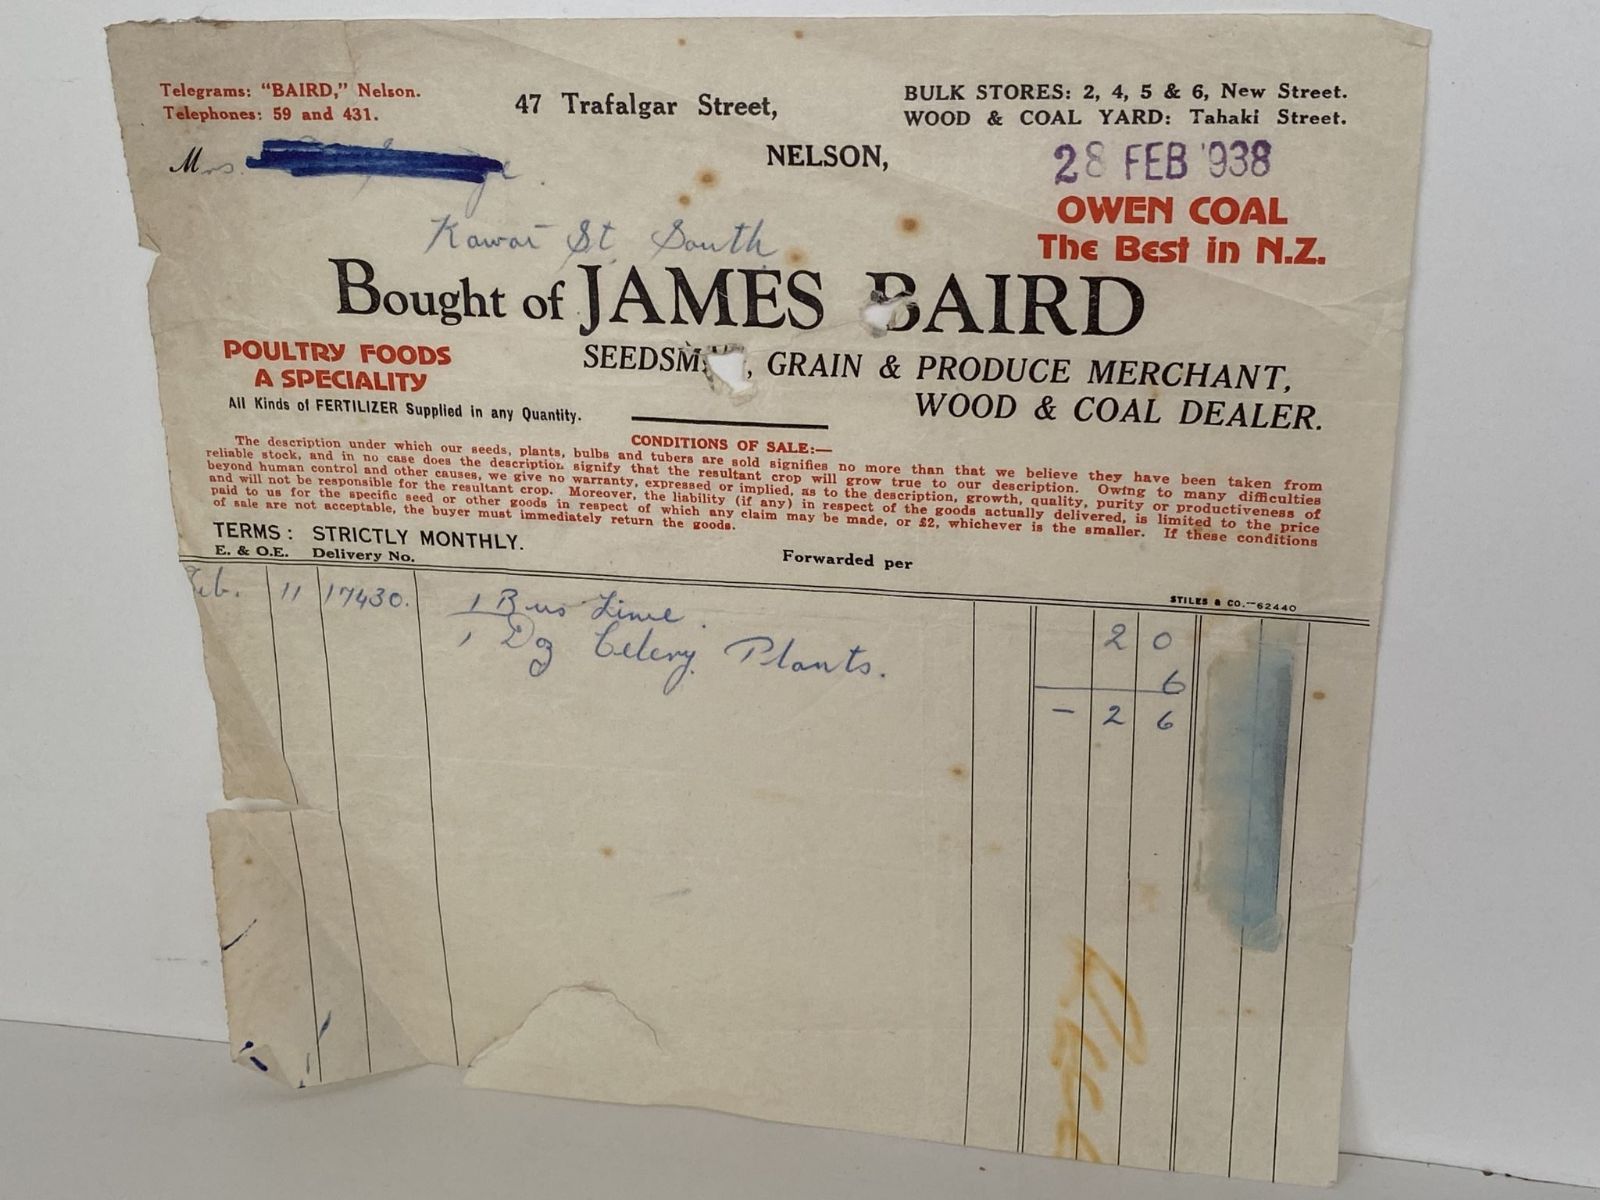 Telegrams: "BAIRD," Nelson.
Telephones: 59 and 431.
47 Trafalgar Street,
NELSON,
BULK STORES: 2, 4, 5 & 6, New Street.
WOOD & COAL YARD: Tahaki Street.
28 FEB '938
Mrs.
OWEN COAL
The Best in N.Z.
Kawai St. South
Bought of JAMES BAIRD
POULTRY FOODS
A SPECIALITY
All Kinds of FERTILIZER Supplied in any Quantity.
SEEDSM , GRAIN & PRODUCE MERCHANT,
WOOD & COAL DEALER.
CONDITIONS OF SALE:—
The description under which our seeds, plants, bulbs and tubers are sold signifies no more than that we believe they have been taken from
reliable stock, and in no case does the description signify that the resultant crop will grow true to our description. Owing to many difficulties
beyond human control and other causes, we give no warranty, expressed or implied, as to the description, growth, quality, purity or productiveness of
and will not be responsible for the resultant crop. Moreover, the liability (if any) in respect of the goods actually delivered, is limited to the price
paid to us for the specific seed or other goods in respect of which any claim may be made, or £2, whichever is the smaller. If these conditions
of sale are not acceptable, the buyer must immediately return the goods.
TERMS: STRICTLY MONTHLY.
E. & O.E. Delivery No. Forwarded per
STILES & CO.—62440
Feb. 11 17430. 1 Bus Lime. 2 0
1 Doz Celery Plants. 6
- 2 6